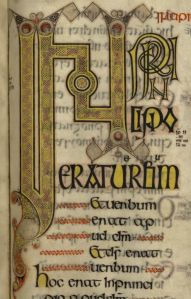 INP RI
N
CIPIO
ERATUERBUM
Etuerbum
erat ap
ud dm
Et ds erat
uerbum
hoc erat inprinci